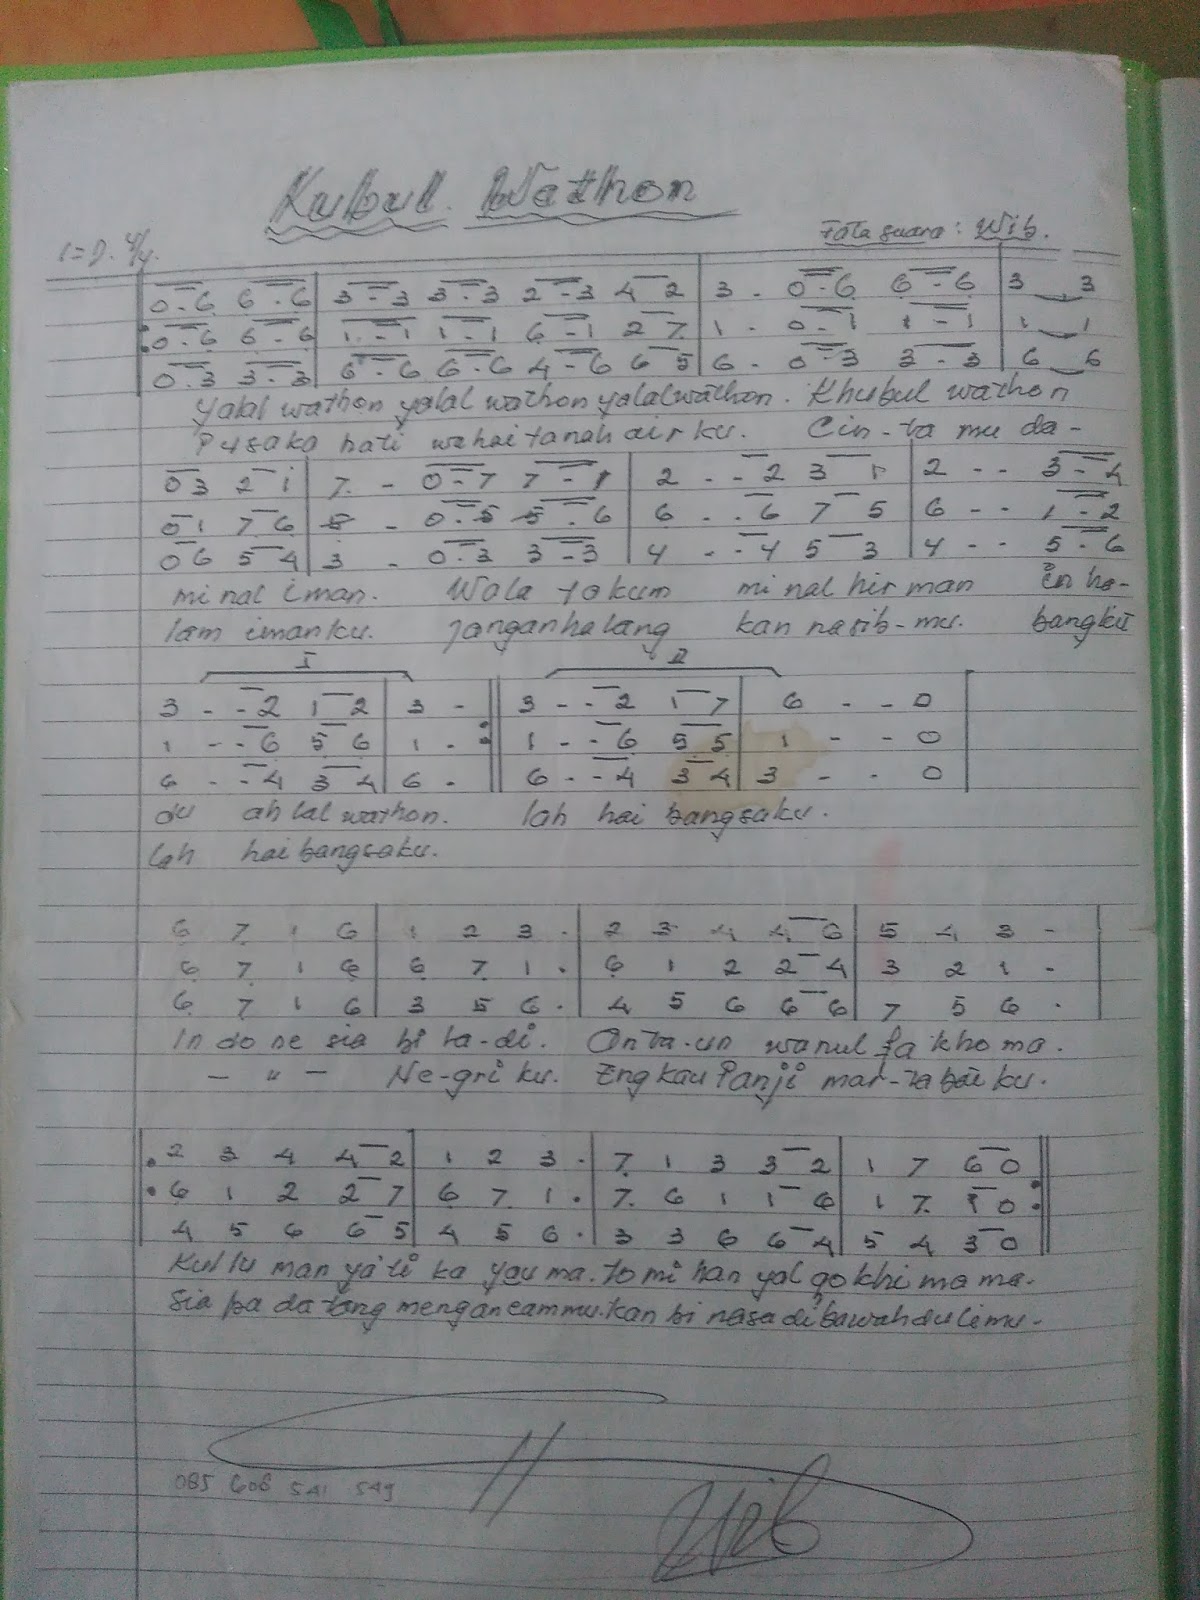 Kubul Wathon
1=D. 4/4. Tata suara: Wib.
0.6 6.6 | 3.3 3.3 2.3 4 2 | 3 . 0.6 6.6 | 3 3
0.6 6.6 | 1.1 1.1 6.1 2 7 | 1 . 0.1 1.1 | 1 1
0.3 3.3 | 6.6 6.6 4.6 6 5 | 6 . 0.3 3.3 | 6 6
yalal wathon yalal wathon yalalwathon. Khubul wathon
Pusaka hati wahai tanah airku. Cin-ta mu da-
03 2 1 | 7 . 0.7 7.1 | 2 . . 2 3 1 | 2 . . 3.4
01 7 6 | . 0.5 5.6 | 6 . . 6 7 5 | 6 . . 1.2
06 5 4 | 3 . 0.3 3.3 | 4 . . 4 5 3 | 4 . . 5.6
mi nal iman. Wala takum mi nal hir man in ha-
lam imanku. janganhalang kan nasib-mu. bangkit
I II
3 . . 2 1 2 | 3 . || 3 . . 2 1 7 | 6 . . 0
1 . . 6 5 6 | 1 . :|| 1 . . 6 5 5 | 1 . . 0
6 . . 4 3 4 | 6 . || 6 . . 4 3 4 | 3 . . 0
du ah lal wathon. lah hai bangsaku.
lah hai bangsaku.
6 7 1 6 | 1 2 3 . | 2 3 4 4 6 | 5 4 3 .
6 7 1 6 | 6 7 1 . | 6 1 2 2 4 | 3 2 1 .
6 7 1 6 | 3 5 6 . | 4 5 6 6 6 | 7 5 6 .
In do ne sia bi la-di. Onta-un wanul fa kho ma.
- " - Ne-gri ku. Engkau Panji mar-tabat ku.
2 3 4 4 2 | 1 2 3 . | 7 1 3 3 2 | 1 7 6 0
6 1 2 2 7 | 6 7 1 . | 7 6 1 1 6 | 1 7 1 0
4 5 6 6 5 | 4 5 6 . | 3 3 6 6 4 | 5 4 3 0
Kul lu man ya'ti ka yau ma. to mi han yal qo khi ma ma.
Sia pa da tang mengancammu. kan bi nasa di bawah dulimu.
085 608 541 549
Wib